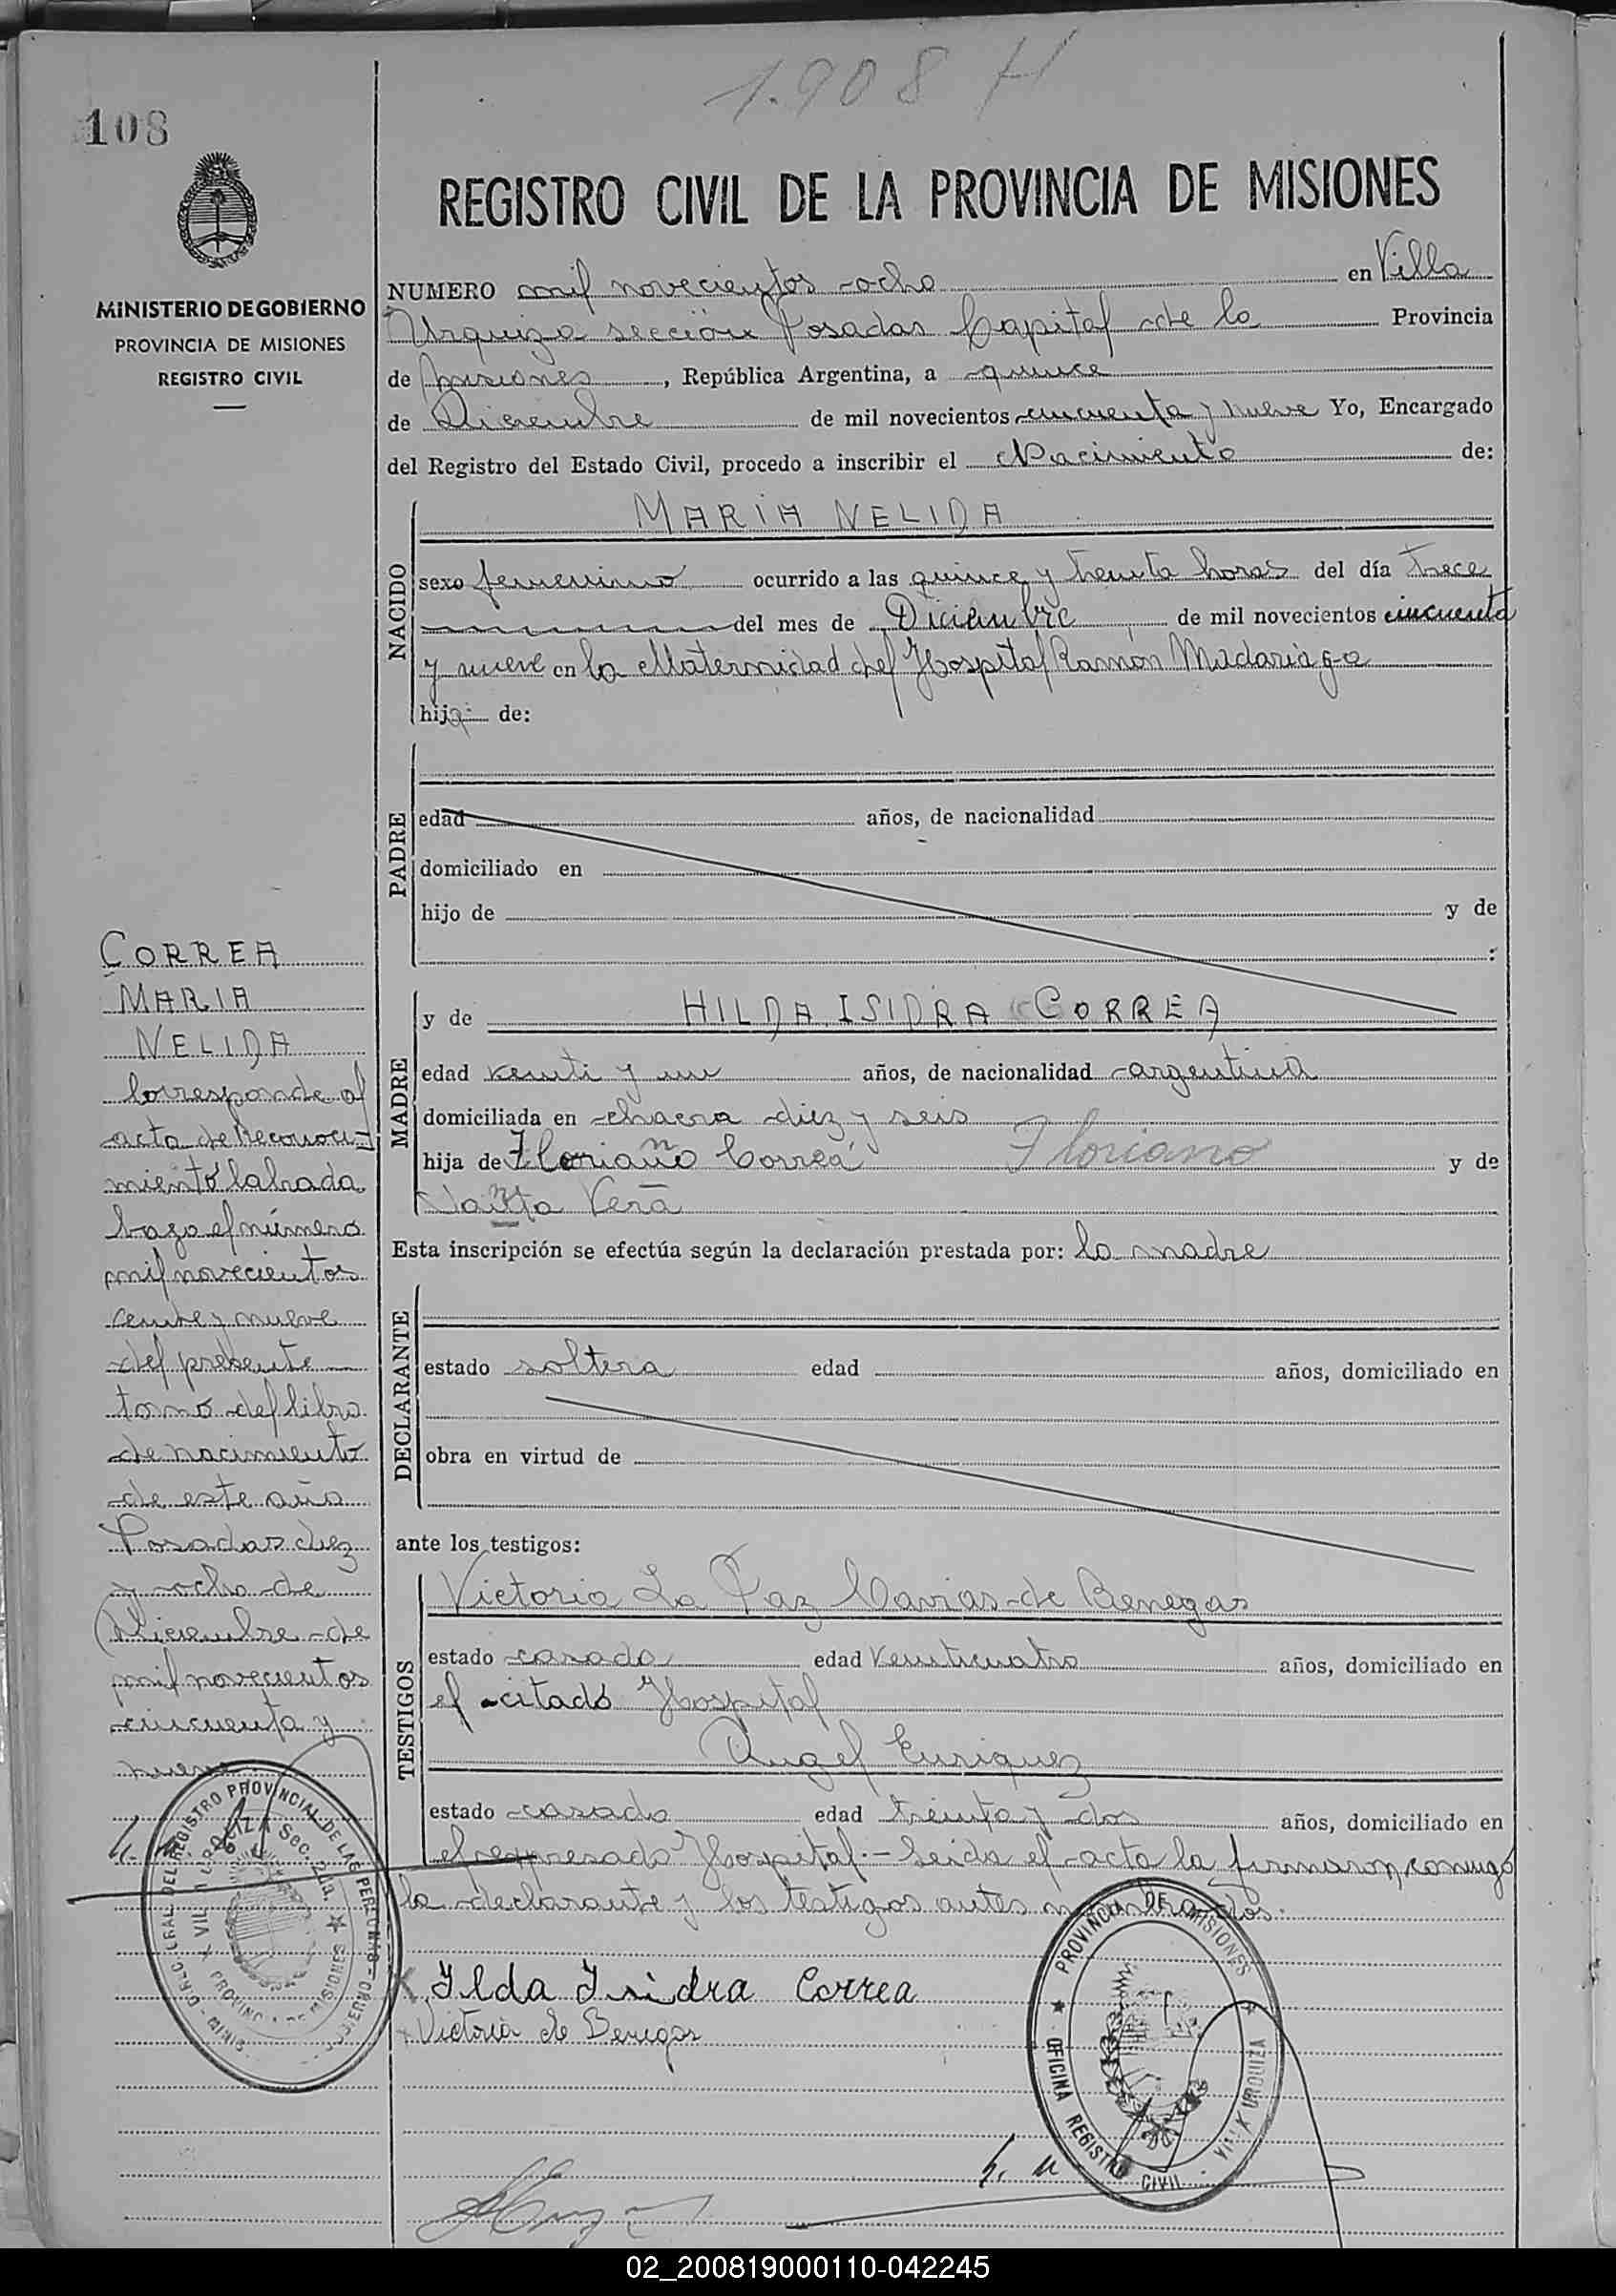 1.908 H
108
REGISTRO CIVIL DE LA PROVINCIA DE MISIONES
MINISTERIO DE GOBIERNO
PROVINCIA DE MISIONES
REGISTRO CIVIL
NUMERO mil novecientos ocho en Villa
Urquiza sección Posadas Capital de la Provincia
de Misiones, República Argentina, a quince
de Diciembre de mil novecientos cincuenta y nueve Yo, Encargado
del Registro del Estado Civil, procedo a inscribir el Nacimiento de:
NACIDO
MARIA NELIDA
sexo femenino ocurrido a las quince y treinta horas del día trece
del mes de Diciembre de mil novecientos cincuenta
y nueve en la Maternidad del Hospital Ramón Madariaga
hija de:
PADRE
edad años, de nacionalidad
domiciliado en
hijo de y de
:
MADRE
y de HILDA ISIDRA CORREA
edad veinti y un años, de nacionalidad argentina
domiciliada en chacra diez y seis
hija de Floriano Correa Floriano y de
Santa Vera
Esta inscripción se efectúa según la declaración prestada por: la madre
DECLARANTE
estado soltera edad años, domiciliado en
obra en virtud de
ante los testigos:
TESTIGOS
Victoria La Paz de Benegas
estado casada edad veinticuatro años, domiciliado en
el citado Hospital
Angel Enriquez
estado casado edad treinta y dos años, domiciliado en
el expresado Hospital.- Leida el acta la firmaron conmigo
la declarante y los testigos antes nombrados.
Ilda Isidra Correa
Victoria de Benegas
CORREA
MARIA
NELIDA
Corresponde al
acta de Reconoci-
miento labrada
bajo el número
mil novecientos
y nueve
del presente
tomo del libro
de nacimiento
de este año
Posadas diez
y ocho de
Diciembre de
mil novecientos
cincuenta y
nueve
PROVINCIA DE MISIONES
OFICINA REGISTRO CIVIL
VILLA URQUIZA
02_200819000110-042245